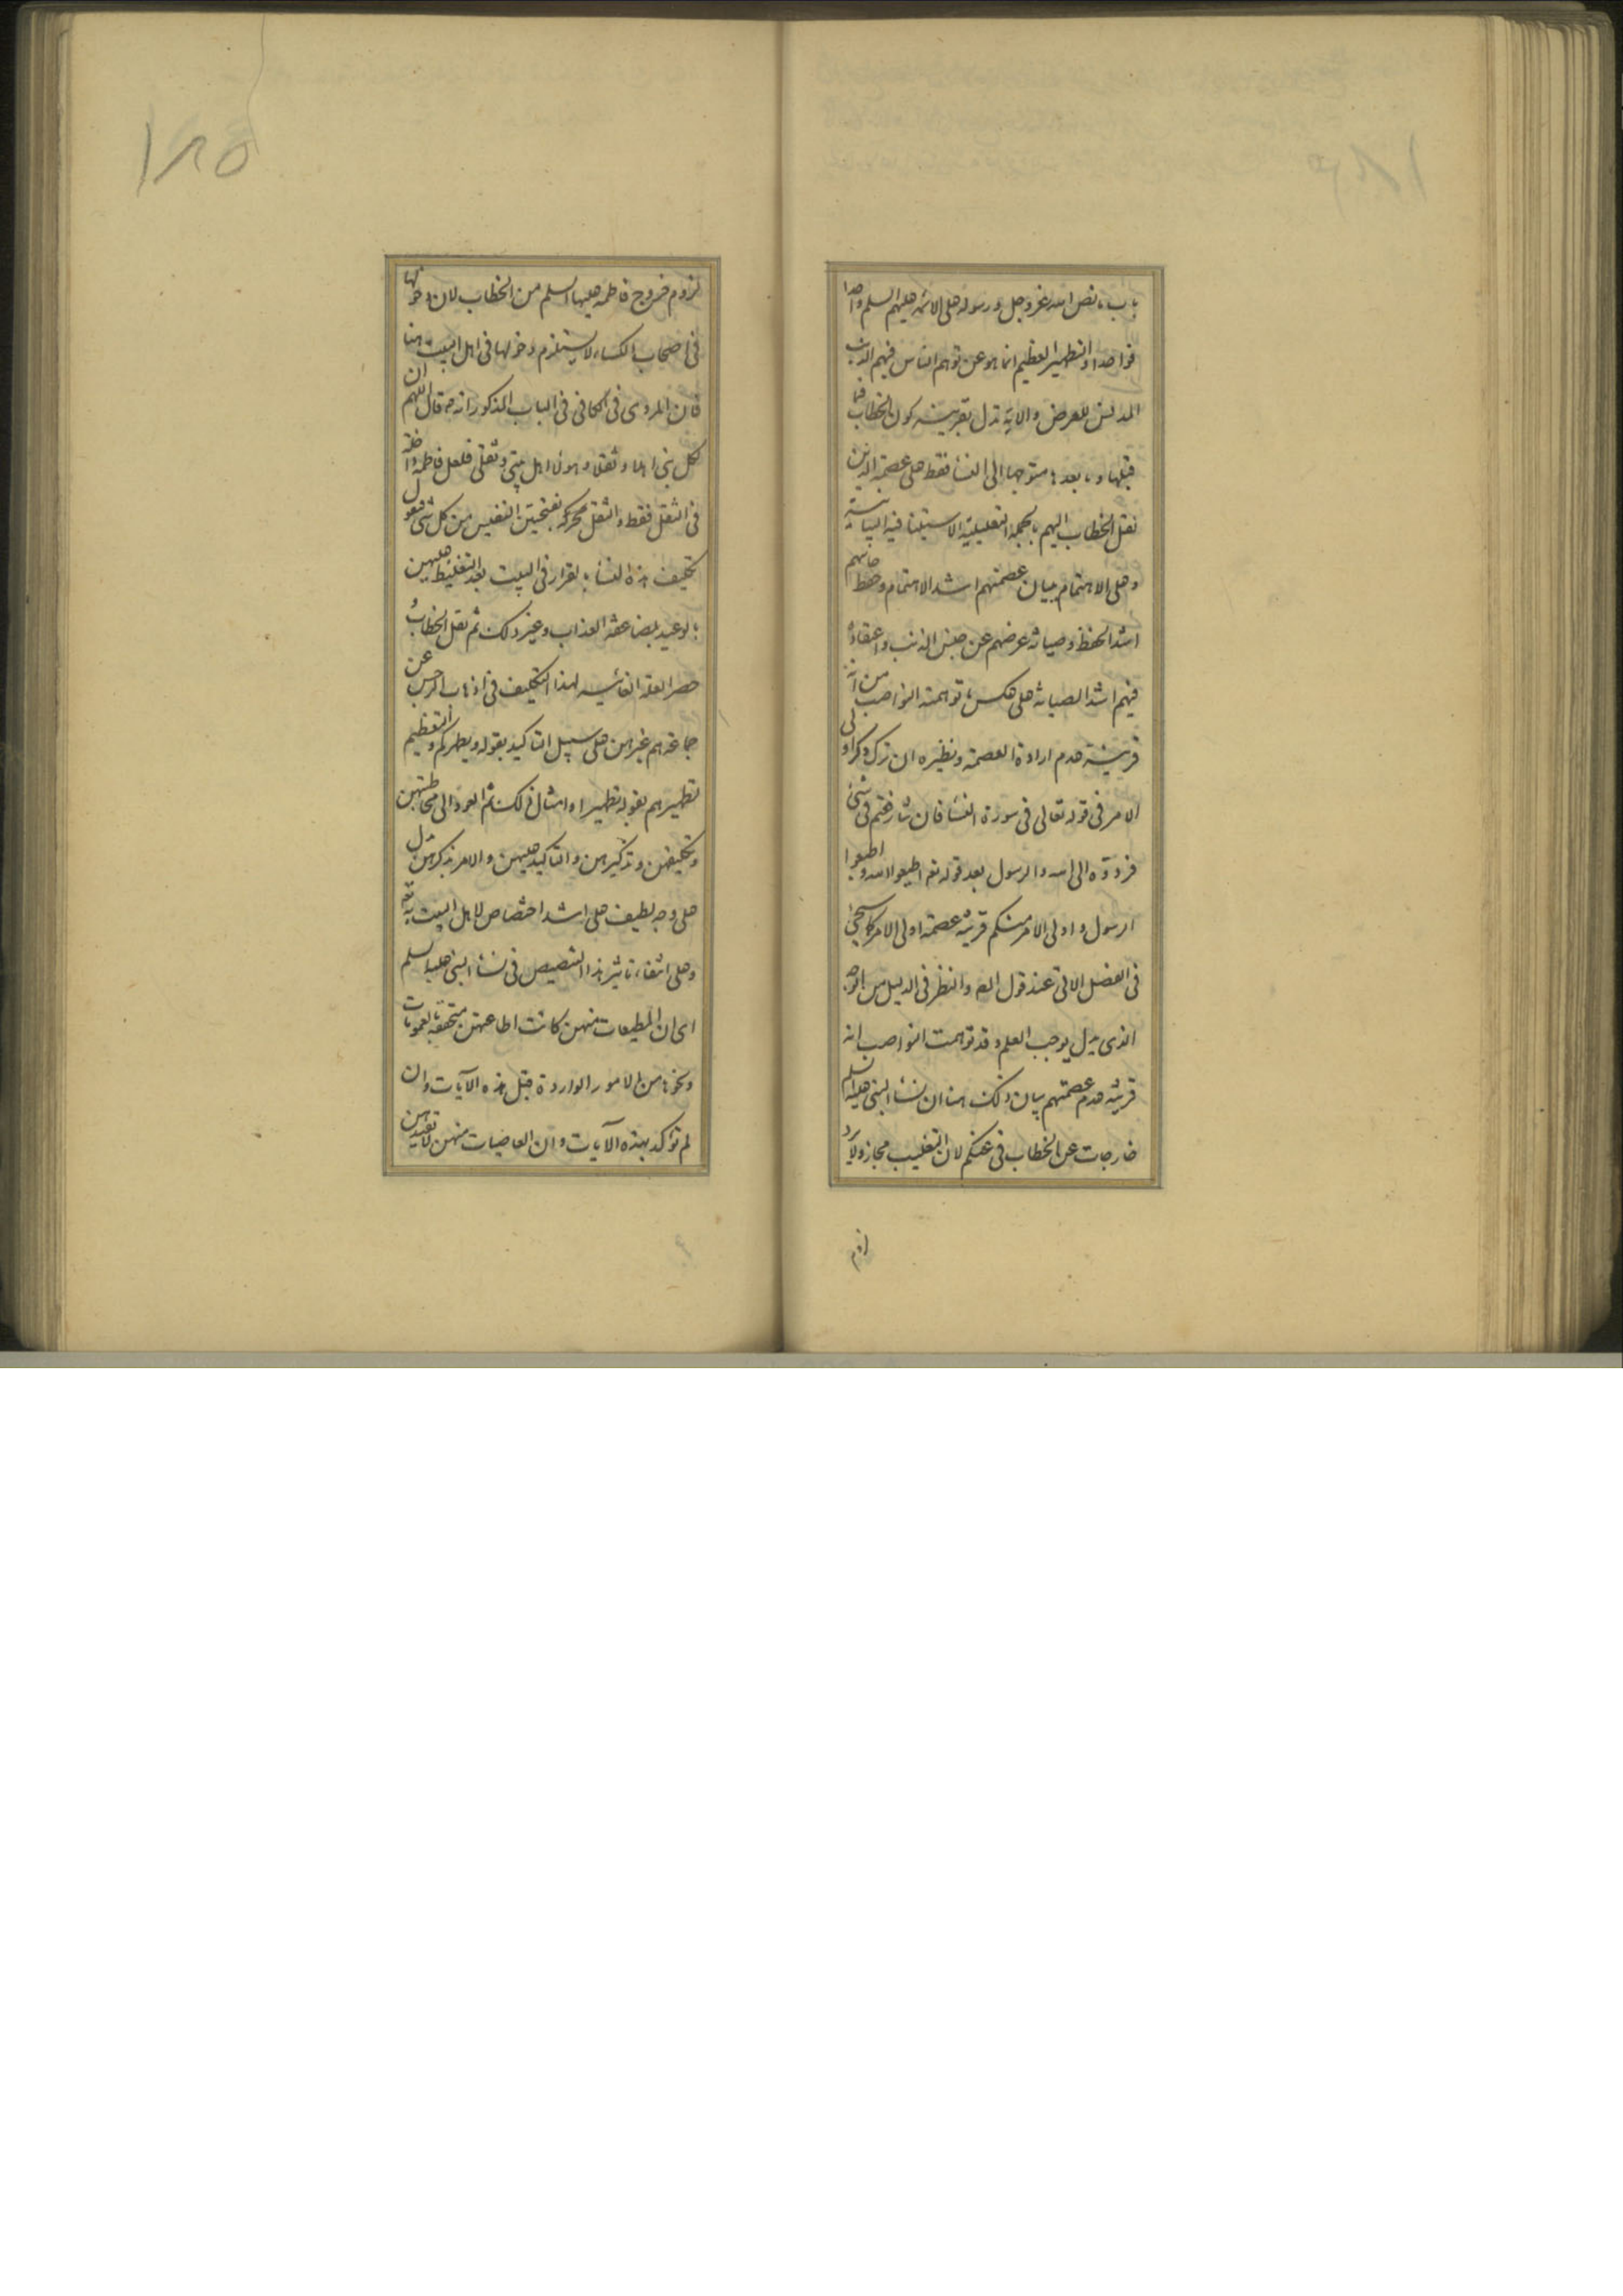 باب ما نص الله عز وجل ورسوله على الائمة عليهم السلم واحدا
فواحدا والتطهير العظيم انما هو عن توهم الناس فيهم الذنب
المدنس للعرض والاية تدل بقرينة كون الخطاب فيما
قبلها وما بعدها متوجها الى النساء فقط على عصمة الذين
نقل الخطاب اليهم بالجملة التعليلية الاستينافية البيانية
وعلى الاهتمام ببيان عصمتهم اشد الاهتمام وحفظ جانبهم
اشد الحفظ وصيانة عرضهم عن جنس الذنب واعتقاده
فيهم اشد الصيانة على عكس ما توهمته النواصب من انه
قرينة عدم ارادة العصمة ونظيره ان ترك ذكر اولى
الامر فى قوله تعالى فى سورة النساء فان تنازعتم فى شىء
فردوه الى الله والرسول بعد قوله تعه اطيعوا الله واطيعوا
الرسول واولى الامر منكم قرينة عصمة اولى الامر كما سيجئ
فى الفصل الاتى عند قول المص والنظر فى الدليل من الوجه
الذى يدل يوجب العلم وقد توهمت النواصب انه
قرينة عدم عصمتهم بيان ذلك هنا ان نساء النبى عليه السلم
خارجات عن الخطاب فى عنكم لان التغليب مجاز ولا يرد
لزوم
١٨٥
لزوم خروج فاطمة عليها السلم من الخطاب لان دخولها
فى اصحاب الكساء لا يستلزم دخولها فى اهل البيت هنا
فان المروى فى الكافى فى الباب المذكور انه ص قال اللهم ان
لكل نبى اهلا وثقلا وهولاء اهل بيتى وثقلى فلعل فاطمة داخلة
فى الثقل فقط والثقل محركة بفتحتين النفيس من كل شىء فنقول
تكليف هذه النساء بالقرار فى البيت بعد التغليظ عليهن
بالوعيد بمضاعفة العذاب وغير ذلك ثم نقل الخطاب و
حصر العلة الغائيه لهذا التكليف فى اذهاب الرجس عن
جماعة هم غيرهن على سبيل التاكيد بقوله ويطهركم والتعظيم
تطهيرهم بقوله تطهيرا وامثال ذلك ثم العود الى مخاطبتهن
وتكليفهن وتذكيرهن والتاكيد عليهن والامر بذكرهن يدل
على وجه لطيف على اشد اختصاص لاهل البيت به تعه
وعلى انتفاء تاثير هذا التنصيص فى نساء النبى عليه السلم
اى ان المطيعات منهن كانت اطاعتهن متحققة بالعمومات
ونحوها من الامور الواردة قبل هذه الآيات وان
لم توكد بهذه الآيات وان العاصيات منهن لا يفيدهن